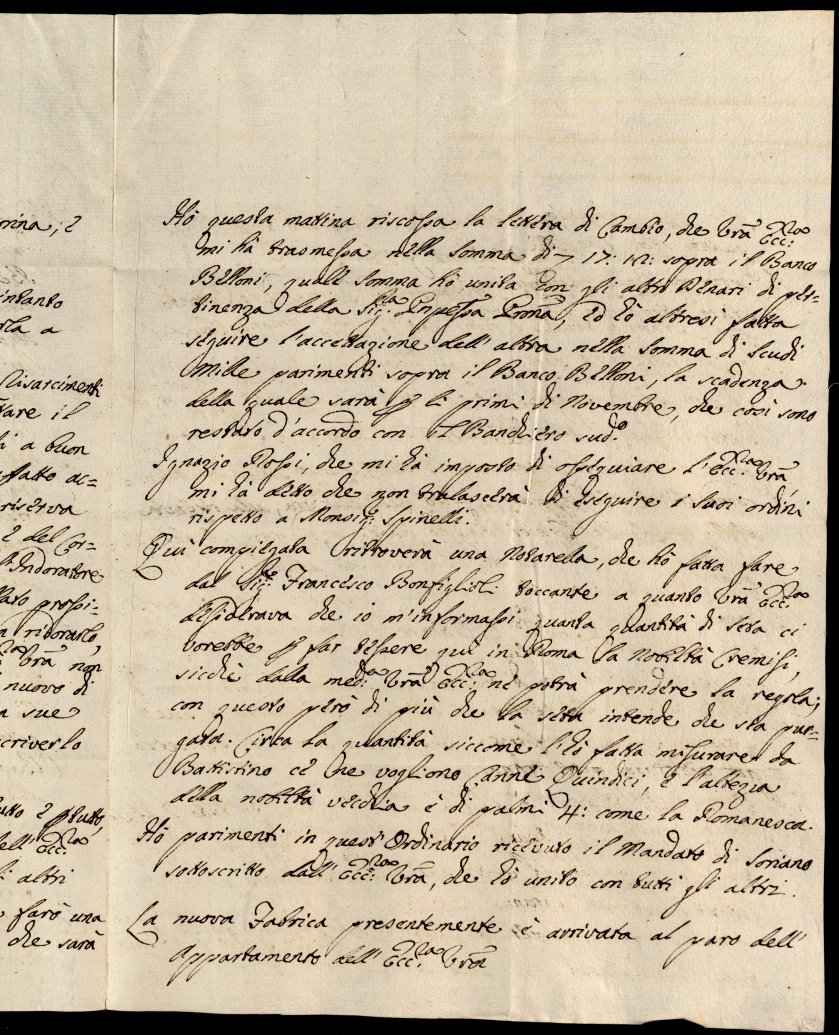 rina, e
intanto
rla a
Risarcimenti
fare il
li a buon
affatto ac=
riserva
e del Cor=
l'Indoratore
passi=
ridorarlo,
Vrã non
nuovo di
sue
scriverlo
tutti,
dell' Ecc.za
altri
farò una
che sarà
Hò questa mattina riscossa la lettera di Cambio, che Vrã Ecc:za
mi hà trasmessa nella somma di 17: 12: sopra il Banco
Belloni, quale somma hò unita con gli altri Denari di per=
tinenza della Sig.ra Pnpessa Pnña, ed hò altresi fatta
seguire l'accettazione dell'altra nella somma di Scudi
Mille parimenti sopra il Banco Belloni, la scadenza
della quale sarà p li primi di Novembre, che così sono
restato d'accordo con il Banchiero sud.o
Ignazio Rossi, che mi hà imposto di ossequiare l'Ecc:za Vrã
mi hà detto che non tralascerà di eseguire i suoi ordini
rispetto a Monsig.r Spinelli.
Quì compiegata ritroverà una Notarella, che hò fatta fare
dal Sig.re Francesco Bonfiglioli toccante a quanto Vrã Ecc:za
desiderava che io m'informassi quanta quantità di seta ci
vorebbe p far tessere quì in Roma la Nobiltà Cremisi,
sicchè dalla med:a Vrã Ecc:za nè potrà prendere la regola;
con questo però di più che la seta intende che sia pur=
gata. Circa la quantità siccome l'hò fatta misurare da
Battistino cè ne vogliono Canne Quindici, e l'altezza
della nobiltà vecchia è di palmi 4: come la Romanesca.
Hò parimenti in quest'Ordinario ricevuto il Mandato di Soriano
sottoscritto dall'Ecc:za Vrã, che hò unito con tutti gli altri.
La nuova Fabrica presentemente è arrivata al paro dell'
Appartamento dell'Ecc:za Vrã